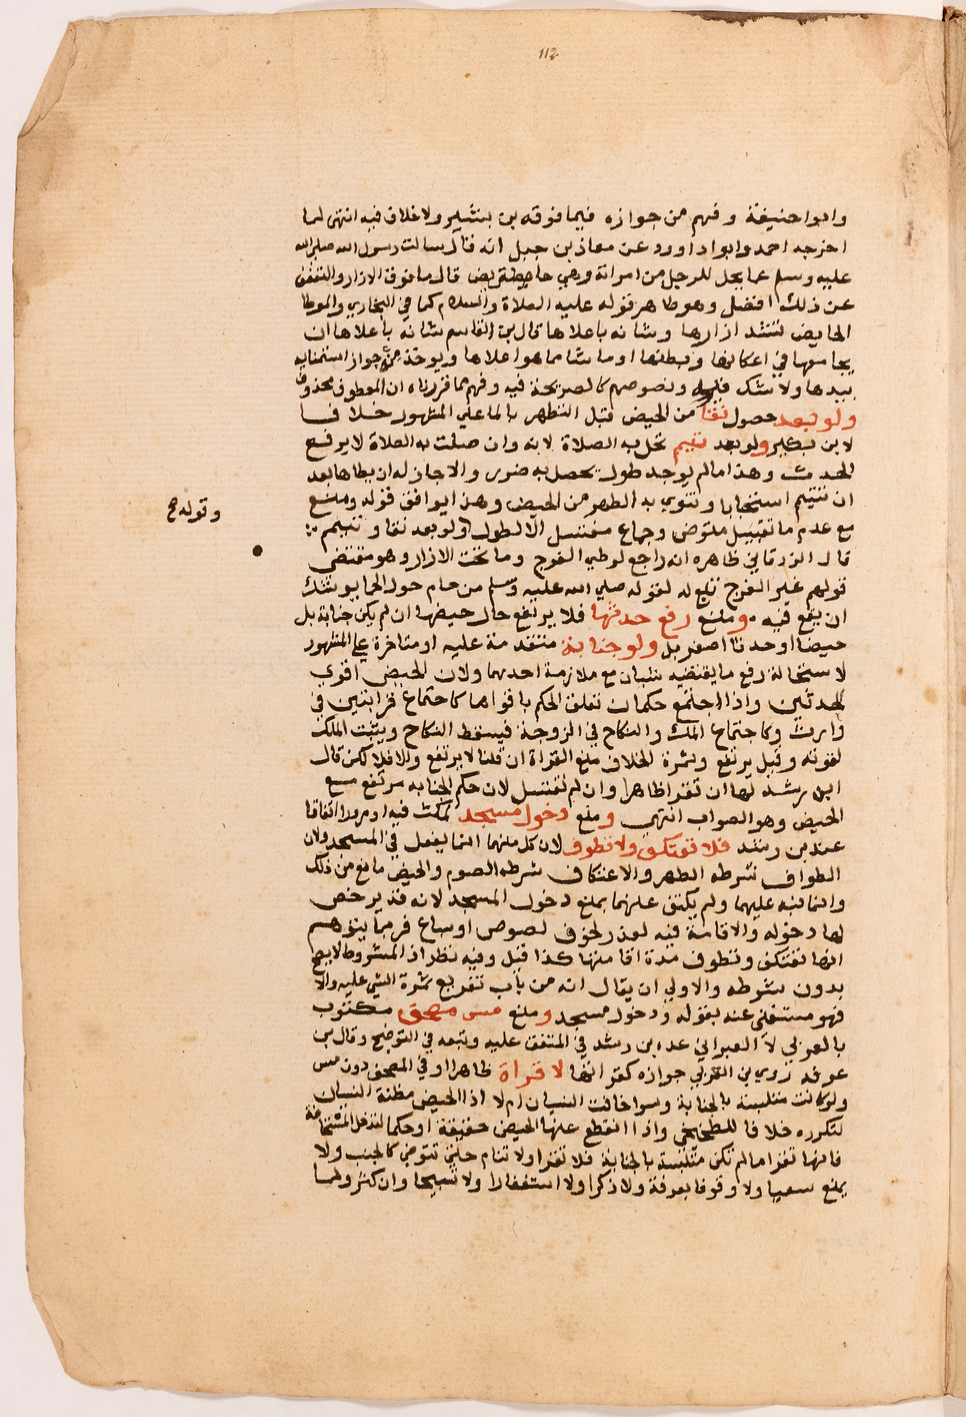 112
وابوا حنيفة وفهم من جوازه فيما فوقه بن بشير ولا خلاف فيه انتهى لما
اخرجه احمد وابوا داوود عن معاذ بن جبل انه قال سالت رسول الله صلى الله
عليه وسلم عما يحل للرجل من امراته وهي حايض قال ما فوق الازار والتعفف
عن ذلك افضل وهو ظاهر قوله عليه الصلاة والسلام كما في البخاري والموطا
الحايض تشد ازارها وشانه باعلاها قال بن القاسم شانه باعلاها ان
يجامعها في اعكانها وبطنها او ما شا مما هو اعلاها ويوخذ منه جواز استمنايه
بيدها ولا شك فيه ونصوصهم كالصريحة فيه وفهم مما قررناه ان المعطوف محذوف
ولو بعد حصول نقا من الحيض قبل التطهر بالما على المشهور خلافا
لابن بكير ولو بعد تيمم تحل به الصلاة لانه وان صلت به الصلاة لا يرفع
الحدث وهذا ما لم يوجد طول يحصل به ضرر والا جاز له ان يطاها بعد
ان تتيمم استحبابا وتنوي به الطهر من الحيض وهذا يوافق قوله ومنع
مع عدم ما تقبيل متوض وجماع مغتسل الا لطول ولو بعد نقا وتيمم
وقوله مح
قال الزرقاني ظاهره انه راجع لوطي الفرج وما تحت الازار وهو مقتضى
قولهم غير الفرج تبع له لقوله صلى الله عليه وسلم من حام حول الحما يوشك
ان يقع فيه ومنع رفع حدثها فلا يرتفع حال حيضها ان لم يكن جنابة بل
حيضا او حدثا اصغر بل ولو جنابة متقدمة عليه او متاخرة على المشهور
لاستحالة رفع ما يقتضيه شيان مع ملازمة احدهما ولان الحيض اقوى
الحدثين واذا اجتمع حكمان تعلق الحكم باقواهما كاجتماع قرابتين في
وارث وكاجتماع الملك والنكاح في الزوجة فيسقط النكاح ويثبت الملك
لقوته وقيل يرتفع وثمرة الخلاف منع القراة ان قلنا لا يرتفع والا فلا لكن قال
ابن رشد لها ان تقرا ظاهرا وان لم تغتسل لان حكم الجنابه مرتفع مع
الحيض وهو الصواب انتهى ومنع دخول مسجد لمكث فيه او مرور اتفاقا
عند بن رشد فلا تعتكف ولا تطوف لان كل منهما انما يفعل في المسجد ولان
الطواف شرطه الطهر والاعتكاف شرطه الصوم والحيض مانع من ذلك
وانما نبه عليهما ولم يكتف عنهما بمنع دخول المسجد لانه قد يرخص
لها دخوله والاقامة فيه لعذر لخوف لصوص او سباع فربما يتوهم
انها تعتكف وتطوف مدة اقامتها كذا قيل وفيه نظر اذ المشروط لا يصح
بدون شرطه والاولى ان يقال انه من باب تفريع ثمرة الشي عليه والا
فهو مستغنى عنه بقوله ودخول مسجد ومنع مس مصحف مكتوب
بالعربي لا العبراني عده بن رشد في المتفق عليه وتبعه في التوضيح وقال بن
عرفه روي بن العربي جوازه كقراتها لا قراة ظاهرا او في المصحف دون مس
ولو كانت متلبسة بالجنابة وسوا خافت النسيان ام لا اذ الحيض مظنة النسيان
لتكرره خلافا للطخيخي واذا انقطع عنها الحيض حقيقة او حكما لتدخل المستحاضة
فانها تقرا ما لم تكن متلبسة بالجنابة فلا تقرا ولا تنام حتى تتوضى كالجنب ولا
يمنع سعيا ولا وقوفا بعرفة ولا ذكرا ولا استغفارا ولا تسبيحا وان كثر ولما